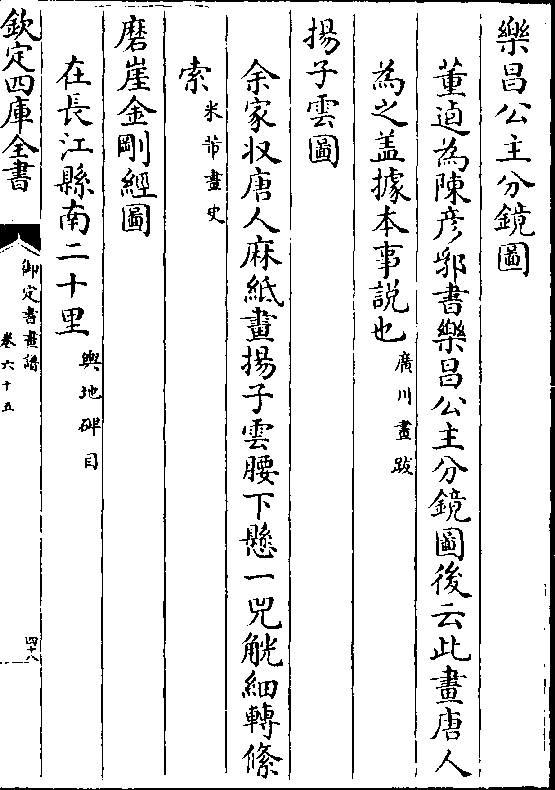 樂昌公主分鏡圖
董逌為陳彥郛書樂昌公主分鏡圖後云此畫唐人
為之盖據本事說也廣川畫跋
揚子雲圖
余家収唐人麻紙畫揚子雲腰下懸一兕觥細轉絛
索米芾畫史
磨崖金剛經圖
在長江縣南二十里輿地碑目
欽定四庫全書
御定書畫譜
卷六十五
四十八